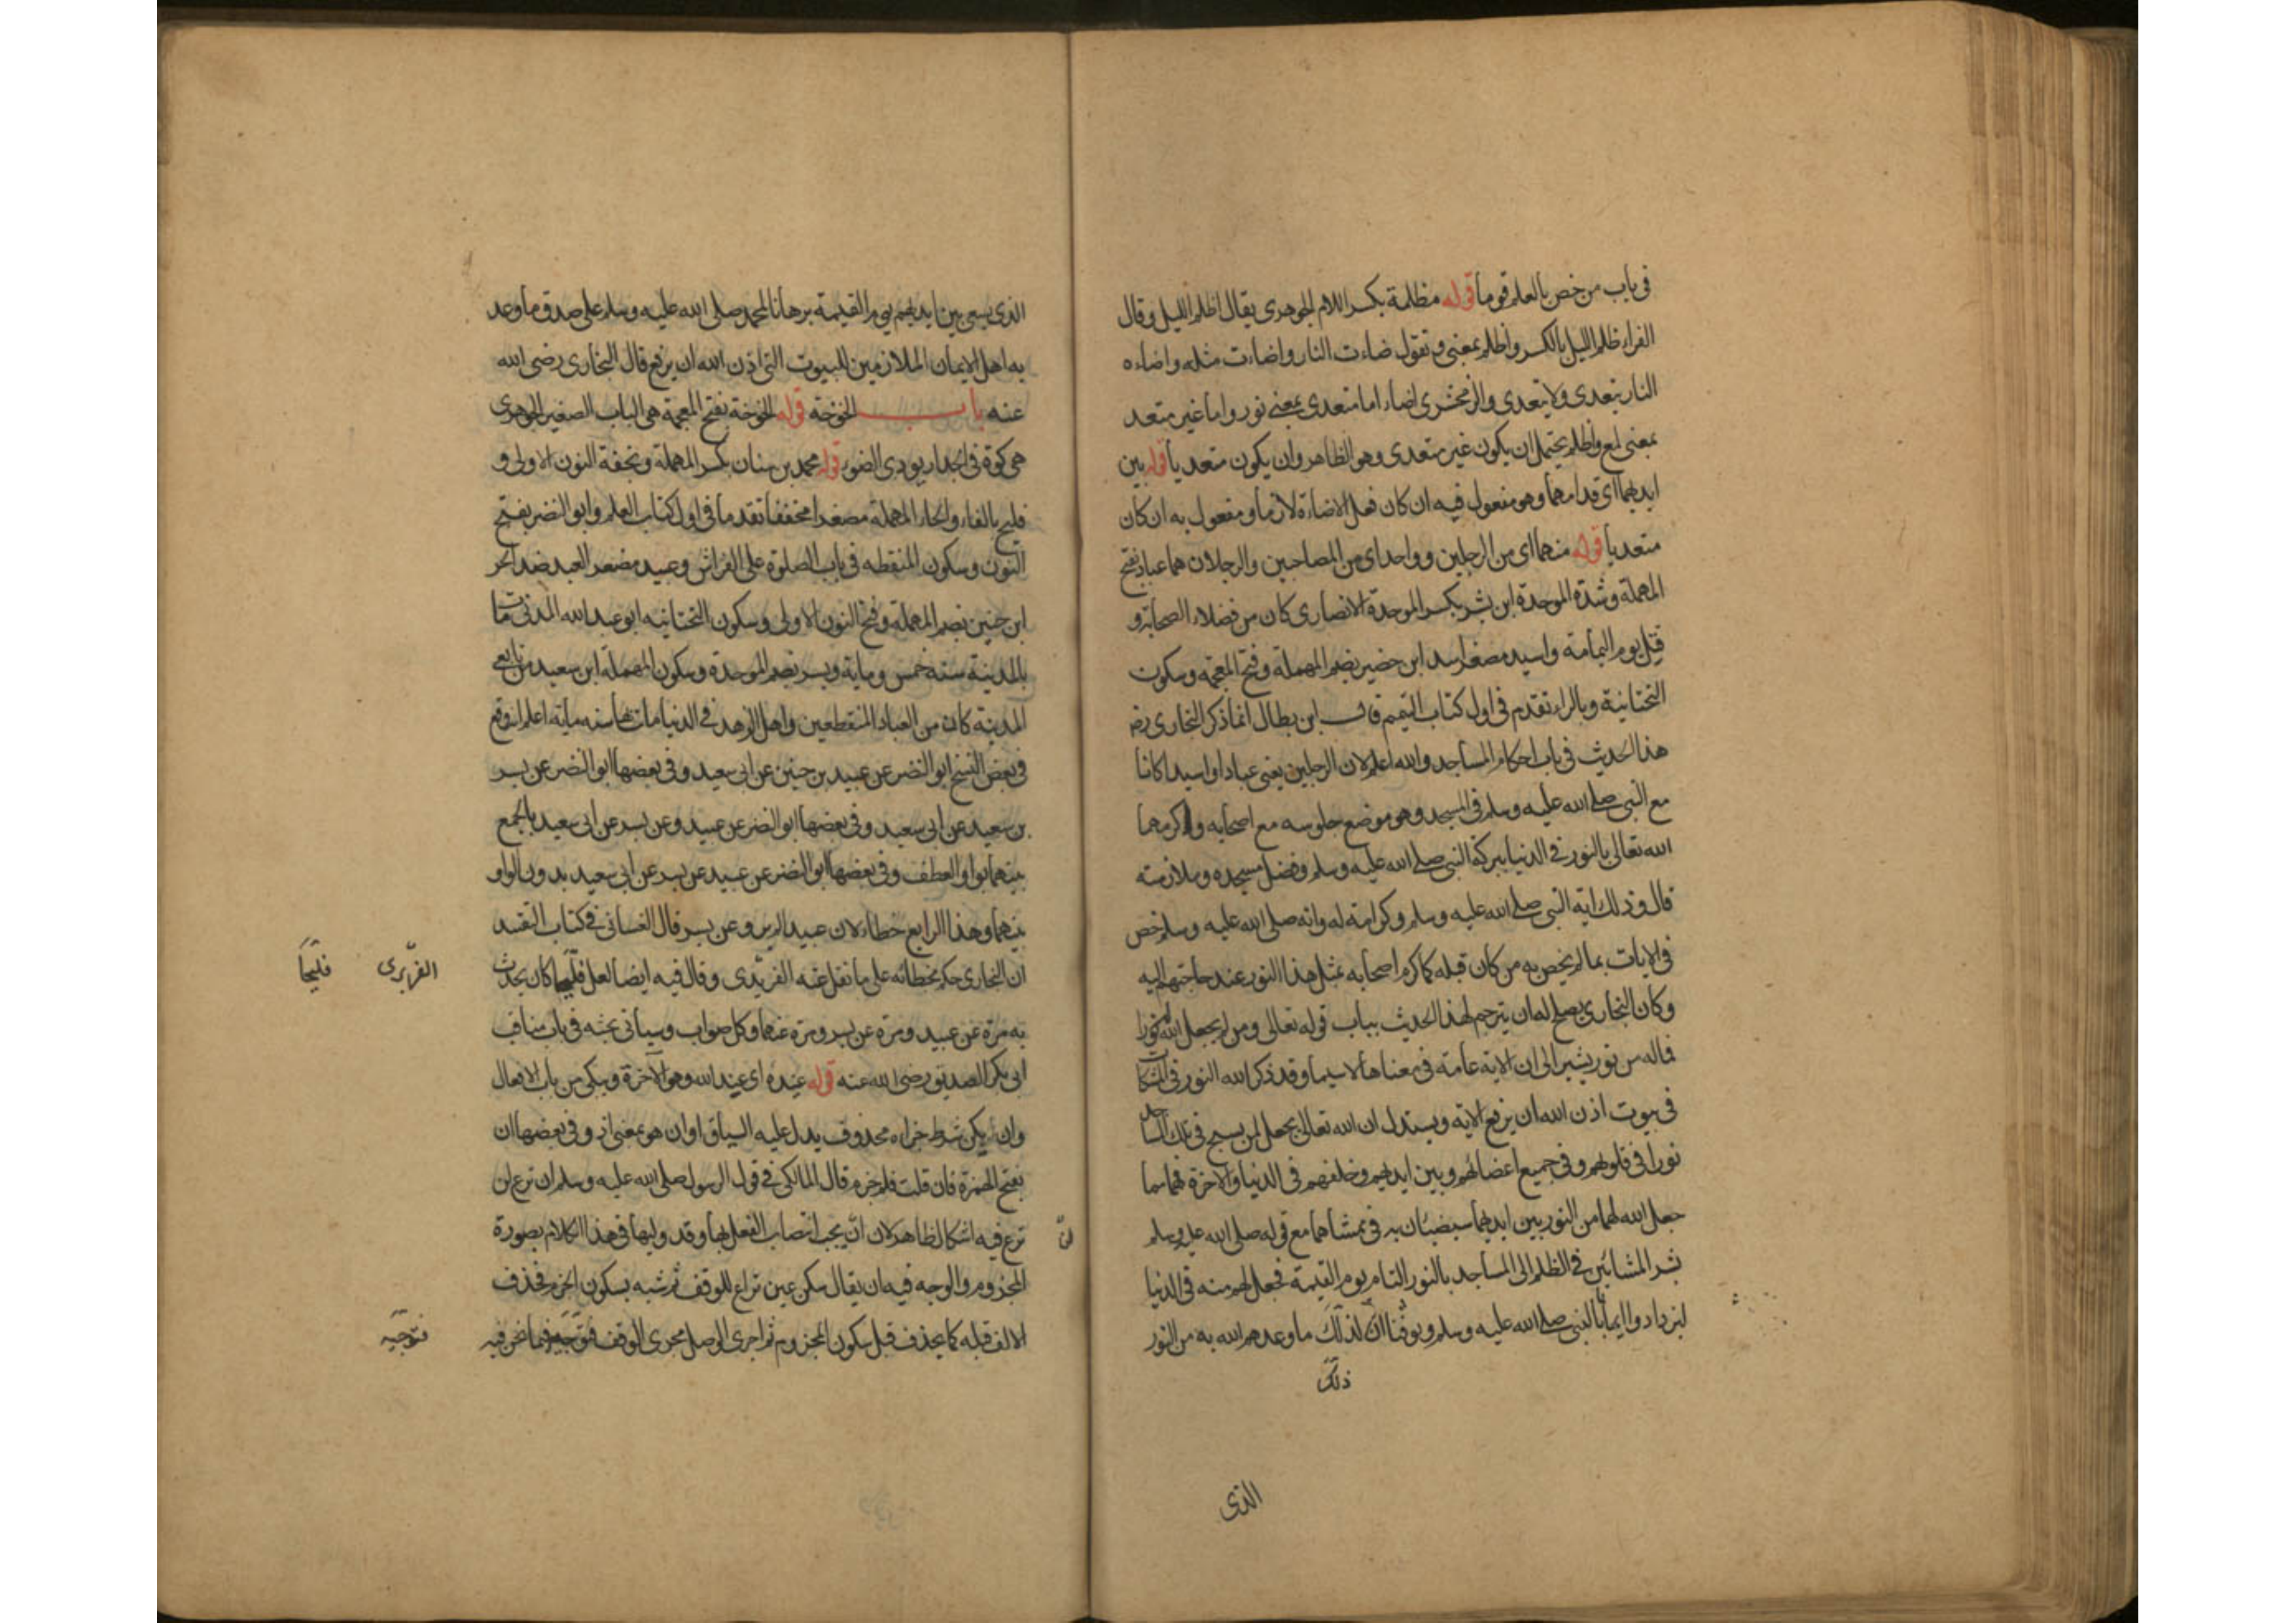 فى باب من خص بالعلم قوما قوله مظلمة بكسر اللام الجوهرى يقال اظلم الليل وقال
الفراء ظلم الليل بالكسر واظلم بمعنى وتقول ضاءت النار واضاءت مثله واضاءه
النار يتعدى ولا يتعدى والزمخشرى اضاء اما متعدى بمعنى نور واما غير متعد
بمعنى لمع واظلم يحتمل ان يكون غير متعدى وهو الظاهر وان يكون متعديا قوله بين
ايديهما اى قدامهما وهو مفعول فيه ان كان فعل الاضاءة لازما ومفعول به ان كان
متعديا قوله منهما اى من الرجلين وواحد اى من المصاحبين والرجلان هما عباد بفتح
المهملة وشدة الموحدة ابن بشر بكسر الموحدة الانصارى كان من فضلاء الصحابة و
قتل يوم اليمامة واسيد مصغر اسد ابن حضير بضم المهملة وفتح المعجمة وسكون
التحتانية وبالراء تقدم فى اول كتاب التيمم قال ابن بطال انما ذكر البخارى رضه
هذا الحديث فى باب احكام المساجد والله اعلم لان الرجلين يعنى عبادا واسيدا كانا
مع النبى صلى الله عليه وسلم فى المسجد وهو موضع جلوسه مع اصحابه واكرمهما
الله تعالى بالنور فى الدنيا ببركة النبى صلى الله عليه وسلم وفضل مسجده وملازمته
قال وذلك اية النبى صلى الله عليه وسلم وكرامة له وانه صلى الله عليه وسلم خص
فى الايات بما لم يخص به من كان قبله كما كرم اصحابه بمثل هذا النور عند حاجتهم اليه
وكان البخارى يصلح له ان يترجم لهذا الحديث بباب قوله تعالى ومن لم يجعل الله له نورا
فما له من نور يشير الى ان الاية عامة فى معناها لا سيما وقد ذكر الله النور فى المشكات
فى بيوت اذن الله ان يرفع الاية ويستدل ان الله تعالى يجعل لمن يسبح فى تلك المساجد
نورا فى قلوبهم وفى جميع اعضائهم وبين ايديهم وخلفهم فى الدنيا والاخرة فهما مما
جعل الله لهما من النور بين ايديهما يستضيئان به فى ممشاهما مع قوله صلى الله عليه وسلم
بشر المشائين فى الظلم الى المساجد بالنور التام يوم القيمة فجعل لهم منه فى الدنيا
ليزدادوا ايمانا بالنبى صلى الله عليه وسلم ويوقنا ان لذلك ما وعدهم الله به من النور
ذلك
الذى
الذى يسعى بين ايديهم يوم القيمة برهانا لمحمد صلى الله عليه وسلم على صدق ما وعد
به اهل الايمان الملازمين للبيوت التى اذن الله ان يرفع قال البخارى رضى الله
عنه باب الخوخة قوله الخوخة بفتح المعجمة هى الباب الصغير الجوهرى
هى كوة فى الجدار يودى الضوء قوله محمد بن سنان بكسر المهملة وبخفة النون الاولى و
فليح بالفاء والحاء المهملة مصغرا مخففا تقدما فى اول كتاب العلم وابو النضر بفتح
النون وسكون المنقطه فى باب الصلوة على الفراش وعبيد مصغر العبد ضد الحر
ابن حنين بضم المهملة وفتح النون الاولى وسكون التحتانيه ابو عبد الله المدنى مات
بالمدينة سنه خمس ومايه وبسر بضم الموحدة وسكون المهملة ابن سعيد من تابعى
المدينة كان من العباد المنقطعين واهل الزهد فى الدنيا مات بها سنه مايه اعلم انه وقع
فى بعض النسخ ابو النضر عن عبيد بن حنين عن ابى سعيد وفى بعضها ابو النضر عن بسر
بن سعيد عن ابى سعيد وفى بعضها ابو النضر عن عبيد وعن بسر عن ابى سعيد بالجمع
بينهما بواو العطف وفى بعضها ابو النضر عن عبيد عن بسر عن ابى سعيد بدون الواو
بينهما وهذا الرابع خطاء لان عبيدا لم يرو عن بسر قال الغسانى فى كتاب التقييد
ان البخارى حكم بخطائه على ما نقل عنه الفربرى وقال فيه ايضا لعل فليحا كان يحدث
الفربرى فليحا
به مرة عن عبيد ومرة عن بسر ومرة عنهما وكل صواب وسياتى بحثه فى باب مناقب
ابى بكر الصديق رضى الله عنه قوله عنده اى عند الله وهو الآخرة ويبكى من باب الافعال
وان يكن شرط جزاءه محذوف يدل عليه السياق او ان هو بمعنى اذ وفى بعضها ان
بفتح الهمزة فان قلت فلم جزم قال المالكى فى قول الرسول صلى الله عليه وسلم لن ترع لن
ترع فيه اشكال ظاهر لان ان يجب انتصاب الفعل بها وقد وليها فى هذا الكلام بصورة
لن
المجزوم والوجه فيه ان يقال سكن عين تراع للوقف ثم شبه بسكون الجزم فحذف
الالف قبله كما يحذف قبل سكون المجزوم ثم اجرى الوصل مجرى الوقف فتوجيه ما نحن فيه
فتوجيه